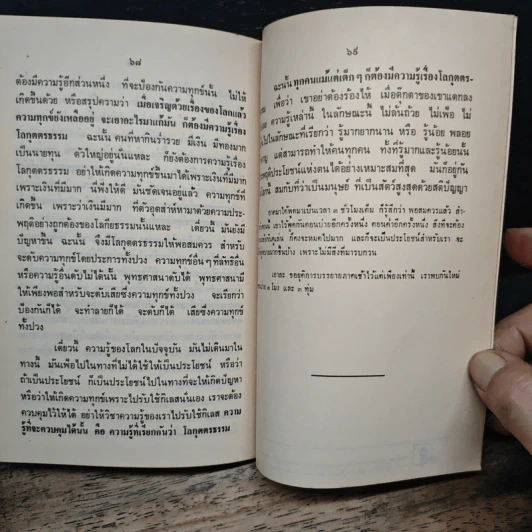 ๖๘
ต้องมีความรู้อีกส่วนหนึ่ง ที่จะป้องกันความทุกข์นั้น ไม่ให้
เกิดขึ้นด้วย หรือสรุปความว่า เมื่อเจริญด้วยเรื่องของโลกแล้ว
ความทุกข์ยังเหลืออยู่ จะเอาอะไรมาแก้มัน ก็ต้องมีความรู้เรื่อง
โลกุตตรธรรม ฉะนั้น คนที่หากินร่ำรวย มีเงิน มีทองมาก
เป็นนายทุน ตัวใหญ่อยู่นั่นแหละ ก็ยังต้องการความรู้เรื่อง
โลกุตตรธรรม อย่าให้เกิดความทุกข์ขึ้นมาได้เพราะเงินที่มีมาก
เพราะเงินที่มีมาก นี่ฟังให้ดี มันชัดเจนอยู่แล้ว ความทุกข์ที่
เกิดขึ้น เพราะว่าเงินมีมาก ที่ตัวอุตส่าห์หามาด้วยความประ-
พฤติอย่างถูกต้องของโลกิยธรรมนั้นแหละ เดี๋ยวนี้ มันยังมี
ปัญหาขึ้น ฉะนั้น จึงมีโลกุตตรธรรมให้พอสมควร สำหรับ
จะดับความทุกข์โดยประการทั้งปวง ความทุกข์อื่นๆที่ลัทธิอื่น
หรือความรู้อื่นดับไม่ได้นั้น พุทธศาสนาดับได้ พุทธศาสนามี
ให้เพียงพอสำหรับจะดับเสียซึ่งความทุกข์ทั้งปวง จะเรียกว่า
ป้องกันก็ได้ จะทำลายก็ได้ จะดับก็ได้ เสียซึ่งความทุกข์
ทั้งปวง
เดี๋ยวนี้ ความรู้ของโลกในปัจจุบัน มันไม่เดินมาใน
ทางนี้ มันเพ้อไปในทางที่ไม่ได้ใช้ให้เป็นประโยชน์ หรือว่า
ถ้าเป็นประโยชน์ ก็เป็นประโยชน์ไปในทางที่จะให้เกิดปัญหา
หรือว่าให้เกิดความทุกข์เพราะไปรับใช้กิเลสนั่นเอง เราจะต้อง
ควบคุมไว้ให้ได้ อย่าให้วิชาความรู้ของเราไปรับใช้กิเลส ความ
รู้ที่จะควบคุมได้นั้น คือ ความรู้ที่เรียกกันว่า โลกุตตรธรรม
๖๙
ฉะนั้น ทุกคนแม้แต่เด็กๆ ก็ต้องมีความรู้เรื่องโลกุตตร-
เพื่อว่า เขาอย่าต้องร้องไห้ เมื่อตุ๊กตาของเขาแตกลง
ความรู้เหล่านี้ ในลักษณะนี้ ไม่ล้นถ้วย ไม่เพ้อ ไม่
ไปในลักษณะที่เรียกว่า รู้มากยากนาน หรือ รู้น้อย พลอย
แต่สามารถทำให้คนทุกคน ทั้งที่รู้มากและรู้น้อยนั้น
ประโยชน์แห่งตนได้อย่างเหมาะสมที่สุด มันก็อยู่กัน
สมกับที่ว่าเป็นมนุษย์ ที่เป็นสัตว์สูงสุดด้วยสติปัญญา
อาตมาได้พูดมาเป็นเวลา ๓ ชั่วโมงเต็ม ก็รู้สึกว่า พอสมควรแล้ว สำ-
เอาไว้พูดกันตอนบ่ายอีกครั้งหนึ่ง ตอนค่ำอีกครั้งหนึ่ง ซึ่งก็จะ
ก็คงจะหมดไปมาก และก็จะเป็นประโยชน์สำหรับเรา จะ
มากยิ่งขึ้นบ้าง เพราะไม่มีสิ่งที่มารบกวน
เอาละ ขอยุติการบรรยายภาคเช้าไว้แต่เพียงเท่านี้ เราพบกันใหม่
๑ โมง และ ๓ ทุ่ม